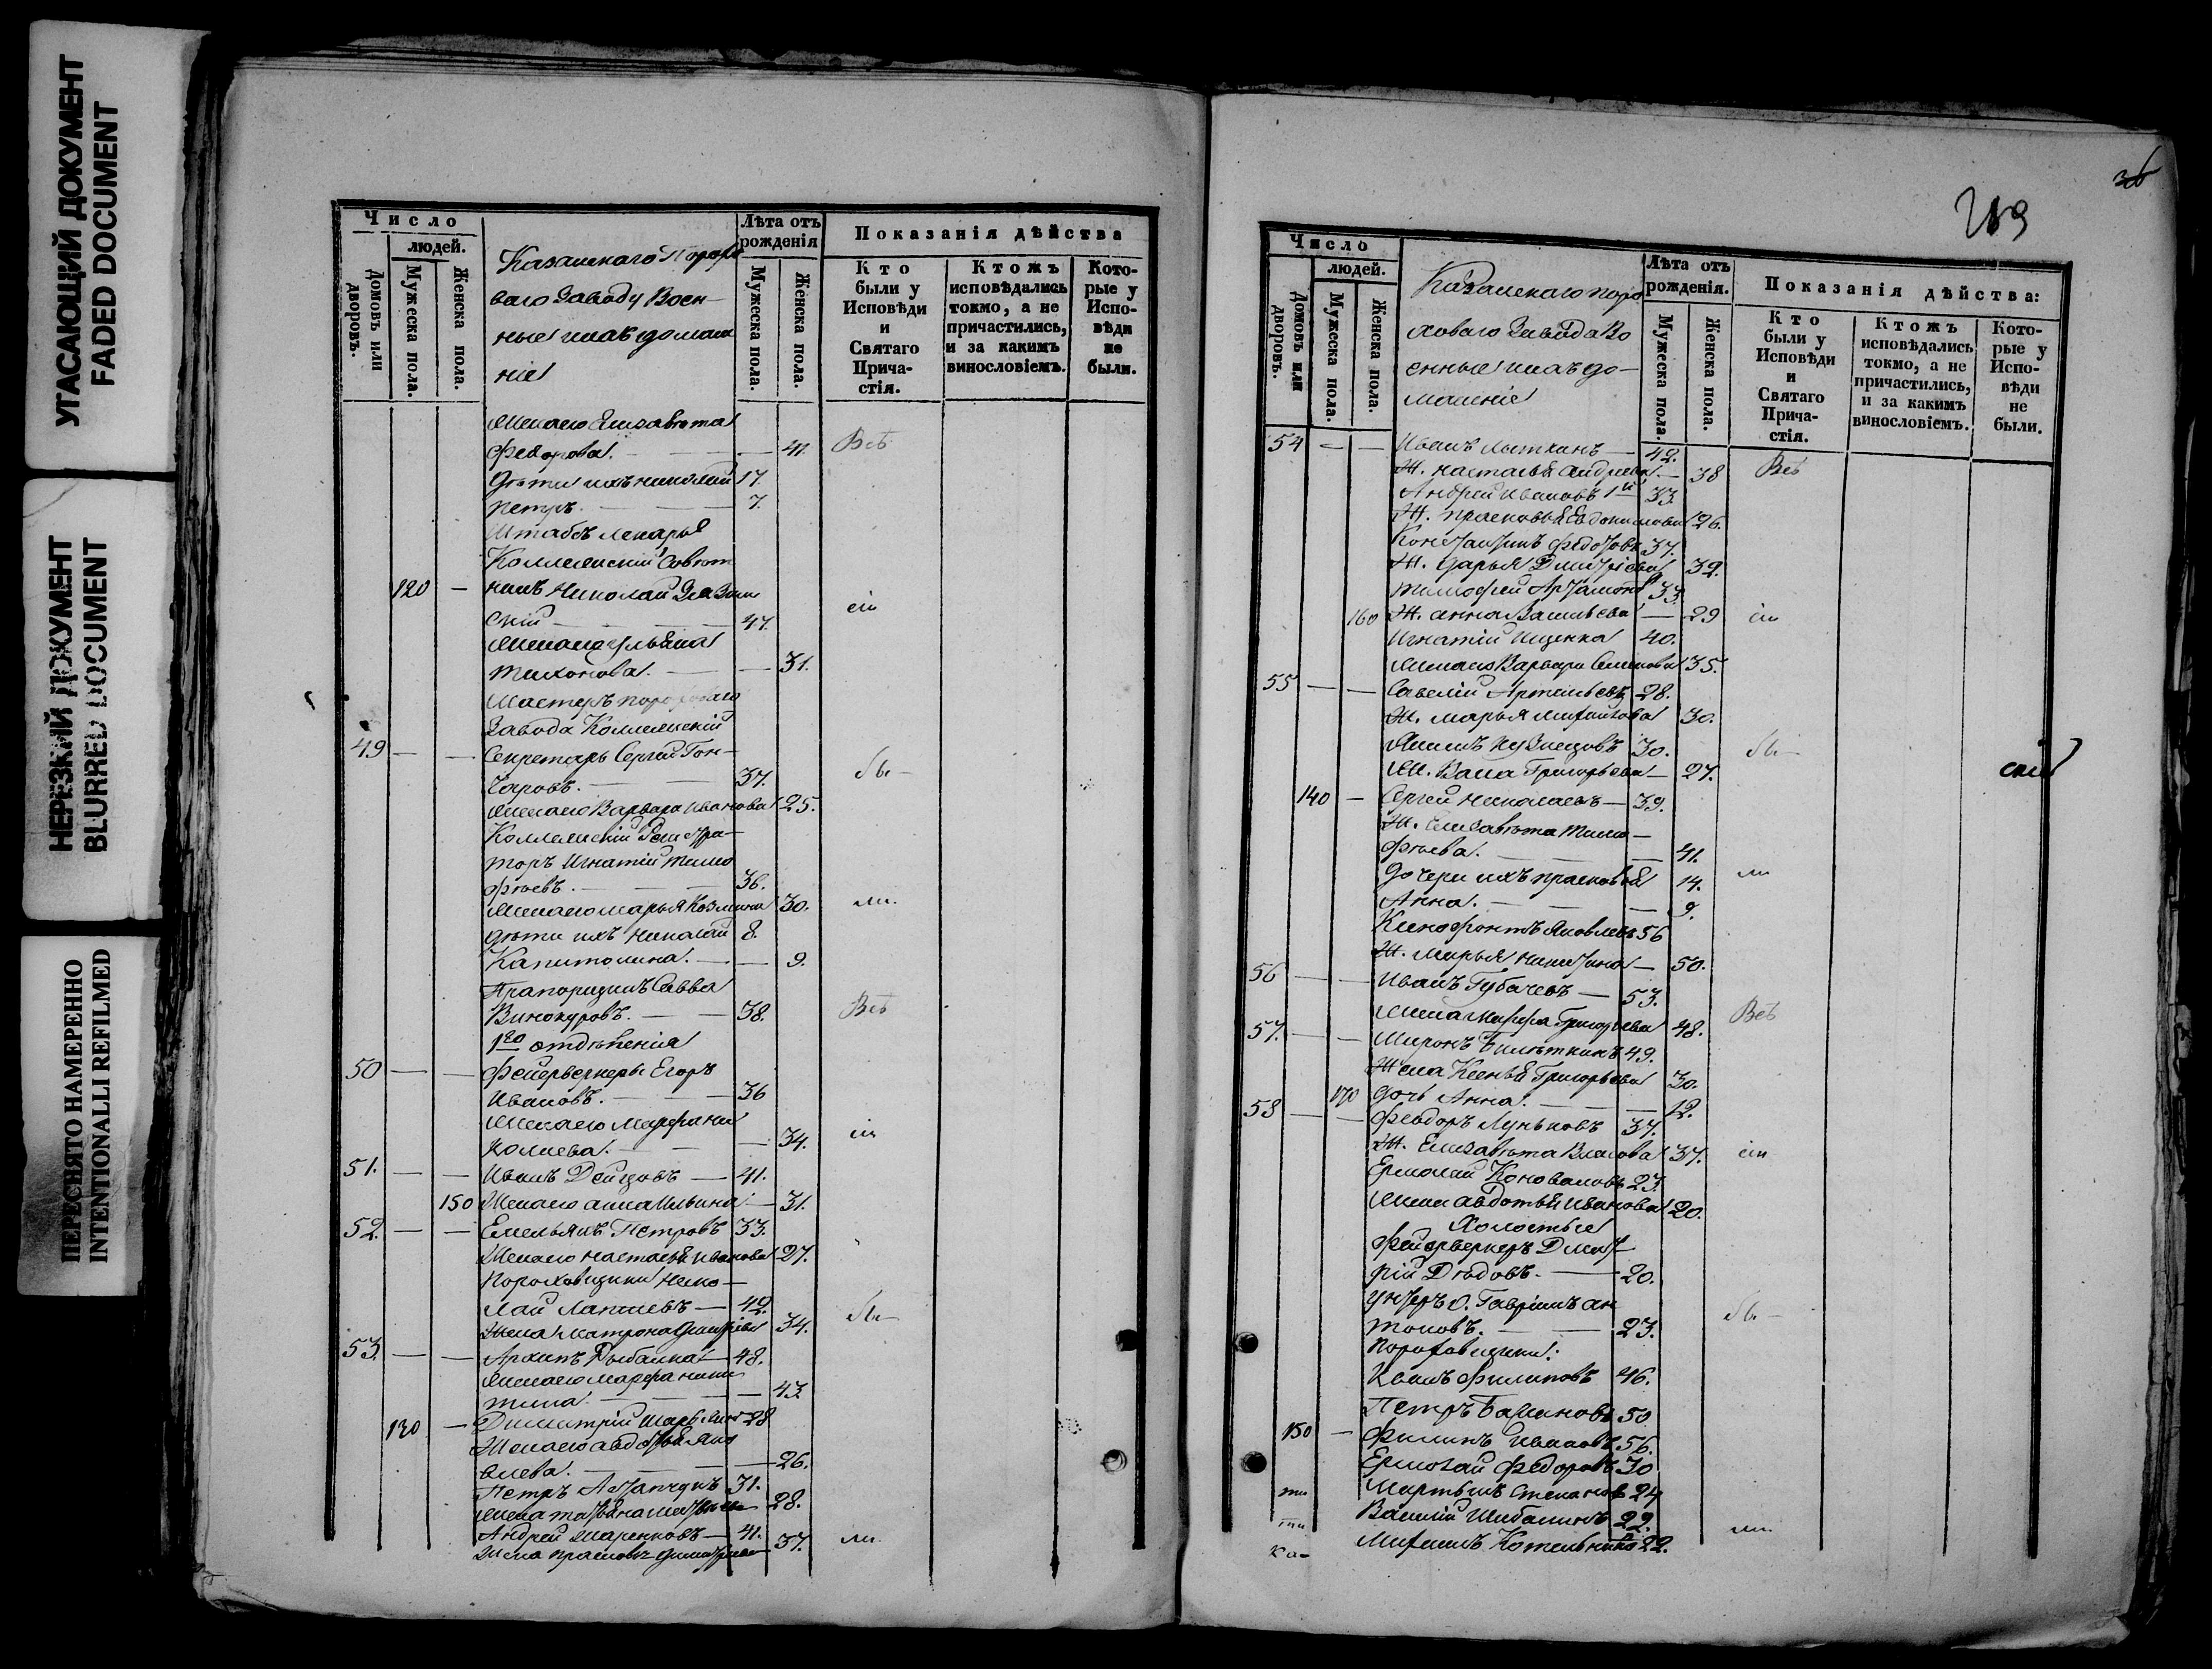 УГАСАЮЩИЙ ДОКУМЕНТ
FADED DOCUMENT
НЕРЕЗКИЙ ДОКУМЕНТ
BLURRED DOCUMENT
ПЕРЕСНЯТО НАМЕРЕННО
INTENTIONALLI REFILMED
Число
людей.
Домовъ или дворовъ.
Мужеска пола.
Женска пола.
Казанскаго Порохо
ваго Заводу Воен-
ные и ихъ домаш
ніе
Лѣта отъ рожденія
Мужеска пола.
Женска пола.
Показанія дѣйства
Кто были у Исповѣди и Святаго Прича-стія.
Ктожъ исповѣдались токмо, а не причастились, и за какимъ винословіемъ.
Кото-рые у Испо-вѣди не были.
Жена его Елизавѣта
Федорова. — 41. Всѣ
Дѣти ихъ Николай 17.
Петръ. — 7.
Штабъ лекарь
Коллежскій Совѣт
120 — никъ Николай
скій — 47.
Жена его Ульяна
Тихонова. — 31.
Мастеръ Пороховаго
Завода Коллежскій
49 — — Секретарь Сергей Гон-
чаровъ. — 37. бы-
Жена его Варвара Иванова 25.
Коллежскій Регистра-
торъ Игнатій Тимо
фѣевъ. — 36.
Жена его Марья Козмина 30. ли.
Дѣти ихъ Николай 8.
Капитолина. — 9.
Прапорщикъ Савва
Винокуровъ. — 38. Всѣ
1го отдѣленія
50 — — Фейерверкеры Егоръ
Ивановъ. — 36
Жена его Марфа Ни
колаева. — 34. сіи
51. — — Иванъ — 41.
150 Жена его Анна Ильина — 31.
52. — — Емельянъ Петровъ 33.
Жена его Настасья Иванова 27.
Пороховщики Нико-
лай Лаптевъ — 42.
Жена Матрона Дмитріева 34. бы-
53. — — Архипъ Рыбалка — 48.
Жена его Марфа Ники
тина — 43.
130 — Димитрій 28
Жена его Авдотья Яко
влева. — 26.
Петръ Астапчукъ 31.
Жена Татьяна 28.
Андрей — 41.
Жена Прасковья Дмитріева 37. ли.
263
36
Число
людей.
Домовъ или дворовъ.
Мужеска пола.
Женска пола.
Казанскаго Поро
ховаго Завода Во
енные и ихъ до-
машніе
Лѣта отъ рожденія.
Мужеска пола.
Женска пола.
Показанія дѣйства:
Кто были у Исповѣди и Святаго Прича-стія.
Ктожъ исповѣдались токмо, а не причастились, и за какимъ винословіемъ.
Кото-рые у Испо-вѣди не были.
54 — — Иванъ Лыткинъ — 42.
Ж. Настасья Андреева — 38 Всѣ
Андрей Ивановъ 1й 33.
Ж. Прасковья Евдокимова 26.
Константинъ Федотовъ 37.
Ж. Дарья Дмитріева 32.
Тимофей Артамон 33.
160 Ж. Анна Васильева — 29 сіи
Игнатій Ищенка 40.
Жена его Варвара Семенова 35.
55 — — Савелій Артемьевъ 28.
Ж. Марья Михайлова 30.
Якимъ Кузнецовъ 30. бы-
Ж. Васса Григорьева — 27.
140 — Сергей Николаевъ — 39.
Ж. Елизавѣта Тимо-
фѣева. — 41.
Дочери ихъ Прасковья 14. ли
Анна. — 9.
Ксенофонтъ Яковлевъ 56
Ж. Марья Никитина — 50.
56 — — Иванъ Губачевъ — 53.
Жена Марфа Григорьева 48. Всѣ
57. — — Миронъ 49.
Жена Ксенья Григорьева 30.
170 Дочь Анна. — 12.
58 — — Феодоръ Луньковъ 37.
Ж. Елизавѣта Власова 37. сіи
Ермолай Коноваловъ 23.
Жена Авдотья Иванова 20.
Холостые
Фейерверкеръ Дмит-
рій Дѣдовъ. — 20.
Унтеръ о. Гаврилъ Ан
тоновъ. — 23. бы-
Пороховщики:
Иванъ Филиповъ 46.
Петръ 50
150 — Филипъ Ивановъ 56.
Ермолай Федоровъ 30
Мартынъ Степановъ 24
Василій Шибалинъ 22.
Михаилъ Котельников 22. ли.